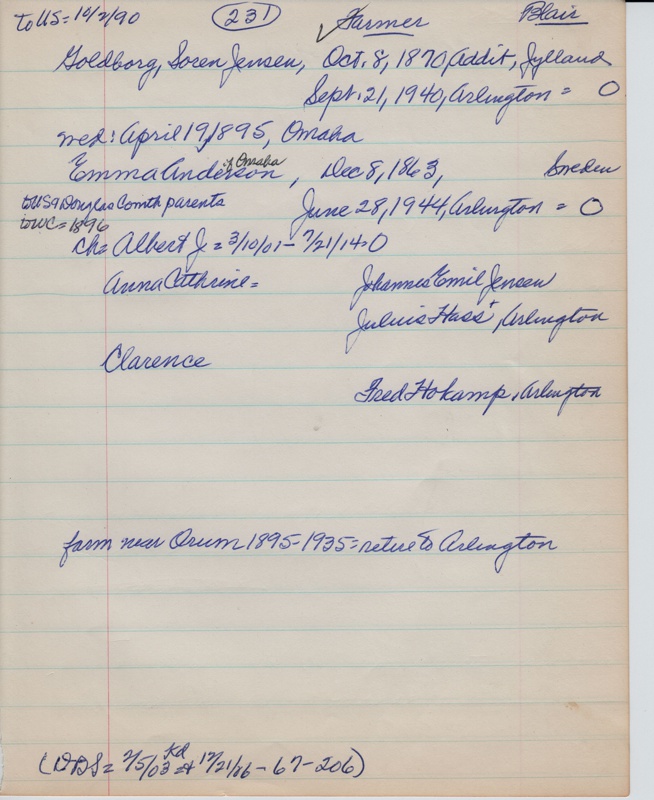 to US = 10/2/90 (231) ✓ Farmer Blair
Goldborg, Soren Jensen, Oct. 8, 1870, Addit, Jylland
Sept. 21, 1940, Arlington = O
wed: April 19, 1895, Omaha
Emma Anderson of Omaha, Dec 8, 1863, Sweden
to US & Douglas Co with parents June 28, 1944, Arlington = O
to WC = 1896
ch = Albert J = 3/10/01 - 7/21/14 = O
Anna Cathrine = Johannes Emil Jensen
Julius Hass +, Arlington
Clarence
Fred Hokamp, Arlington
farm near Orum 1895-1935 = retire to Arlington
(DBS = 2/5/03 Kd 12/21/86 - 67-206)